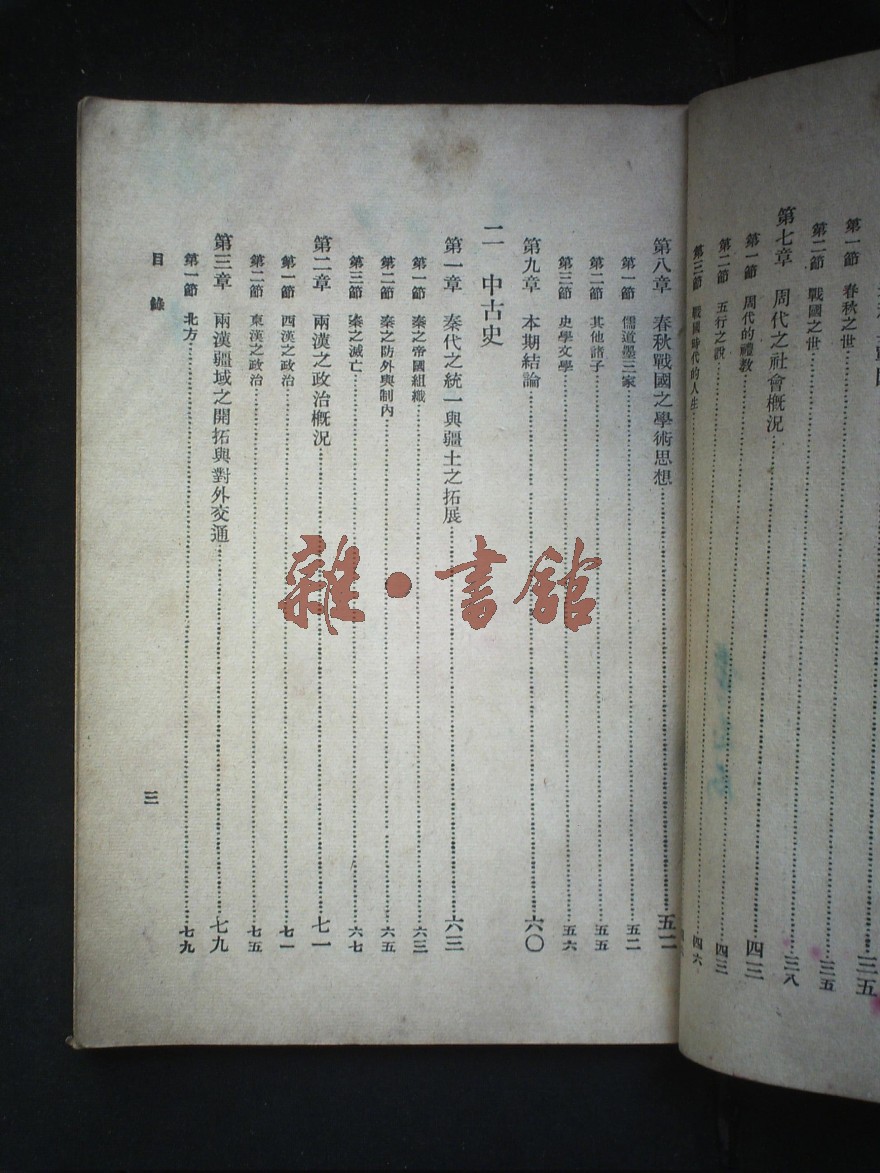 第一節 春秋之世……三五
第二節 戰國之世……三五
第七章 周代之社會概況……三八
第一節 周代的禮教……四三
第二節 五行之說……四三
第三節 戰國時代的人生……四六
第八章 春秋戰國之學術思想……五二
第一節 儒道墨三家……五二
第二節 其他諸子……五五
第三節 史學文學……五六
第九章 本期結論……六〇
二 中古史
第一章 秦代之統一與疆土之拓展……六三
第一節 秦之帝國組織……六三
第二節 秦之防外與制內……六五
第三節 秦之滅亡……六七
第二章 兩漢之政治概況……七一
第一節 西漢之政治……七一
第二節 東漢之政治……七五
第三章 兩漢疆域之開拓與對外交通……七九
第一節 北方……七九
目錄
三
雜·書館